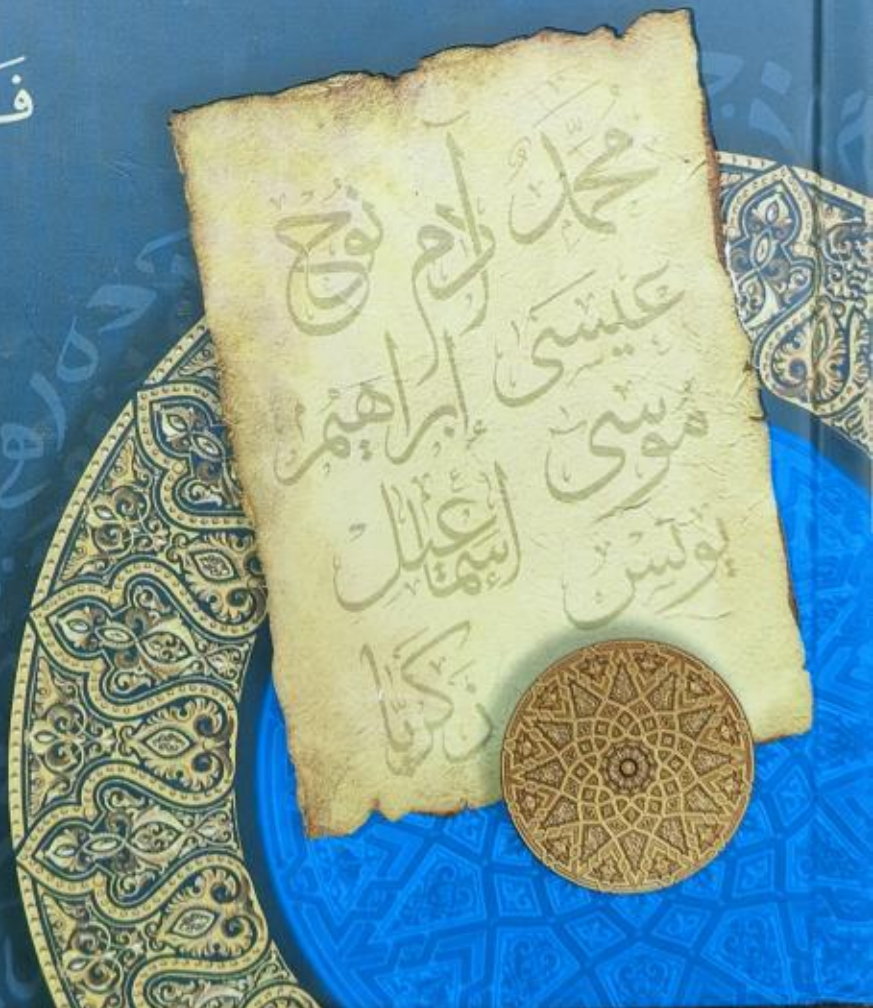 محمّد آدم نوح
عيسى
إبراهيم
موسى
إسماعيل
يونس
زكريّا